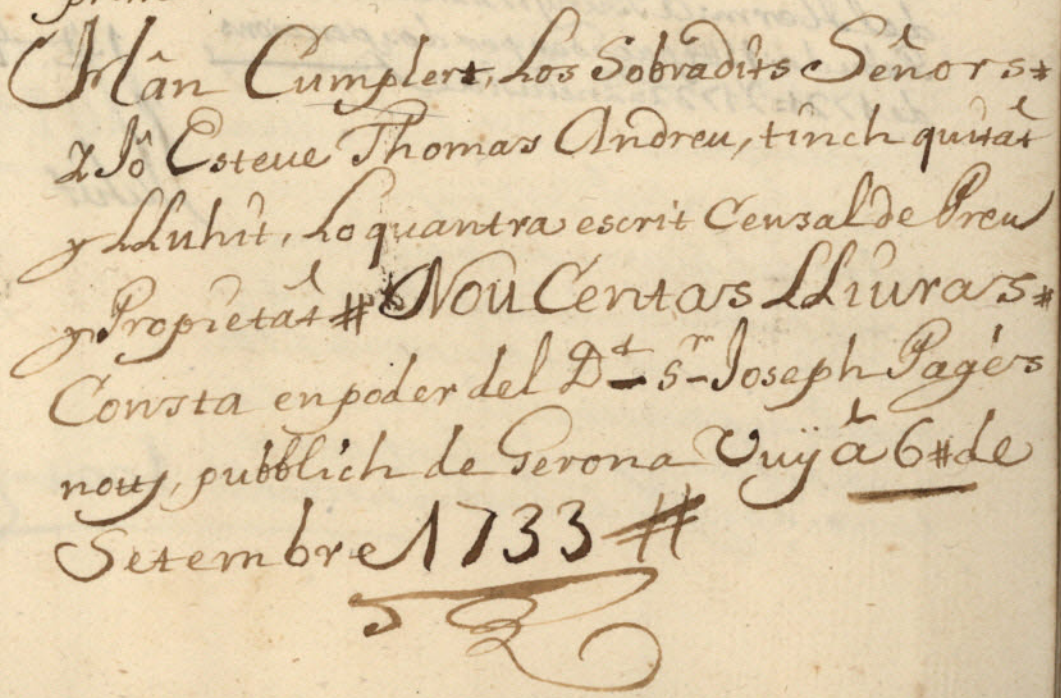 Mân Cumplert, Los Sobradits Señors #
y Jô Esteue Thomas Andreu, tinch quitat
y LLuhit, Lo quantra escrit Censal de Preu
y Propietat # Nou Centas LLiuras #
Consta en poder del Dt Sr Joseph Pagès
notj, pubblich de Gerona Vuÿ â 6 # de
Setembre 1733 #